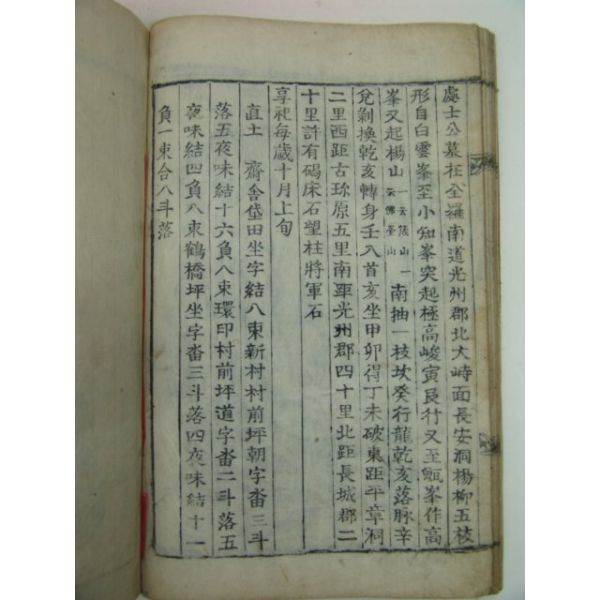 處士公墓在全羅南道光州郡北大峙面長安洞楊柳五枝
形自白雲峯至小知峯突起極高峻寅艮行又至甑峯作高
峯又起楊山一云陰山一云佛臺山南抽一枝坎癸行龍乾亥落脉辛
兌剝換乾亥轉身壬入首亥坐甲卯得丁未破東距平章洞
二里西距古珍原五里南距光州郡四十里北距長城郡二
十里許有碣床石望柱將軍石
享祀每歲十月上旬
直土 齋舍垈田坐字結八束新村村前坪朝字畓三斗
落五夜味結十六負八束環印村前坪道字畓二斗落五
夜味結四負八束鶴橋坪坐字畓三斗落四夜味結十一
負一束合八斗落